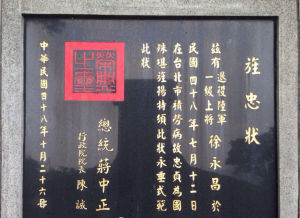 旌忠狀
茲有退役陸軍
一級上將徐永昌於
民國四十八年七月十二日
在台北市積勞病故忠貞為國
殊堪旌揚特頒此狀永垂式範
此狀
總統蔣中正
行政院院長陳誠
中華民國四十八年十月二十六日